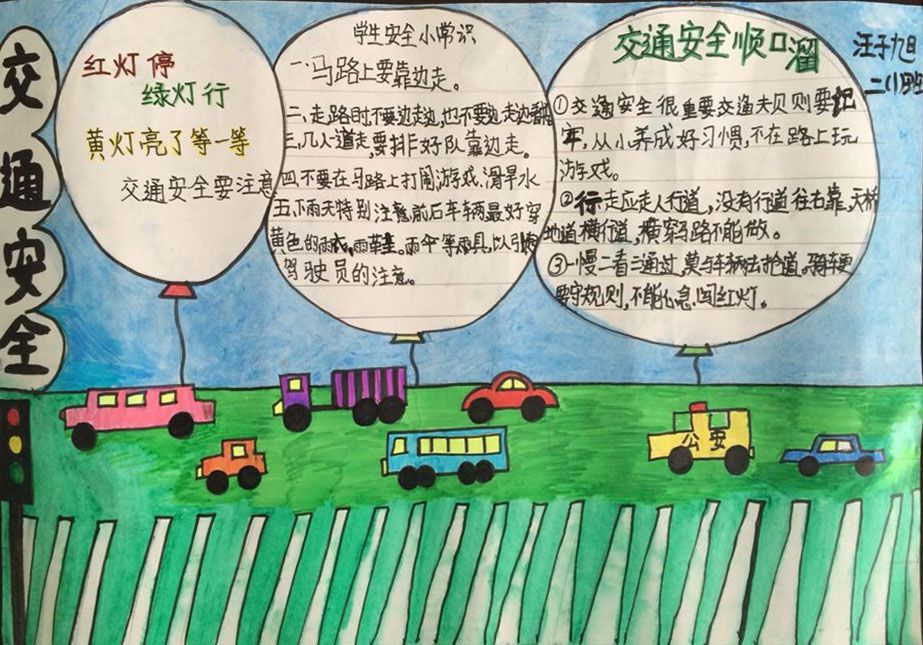 交通安全
红灯停
绿灯行
黄灯亮了等一等
交通安全要注意
学生安全小常识
一、马路上要靠边走。
二、走路时不要边走边,也不要边走边翻
三、几人道走,要排好队靠边走。
四不要在马路上打闹,游戏,滑旱冰
五、下雨天特别注意前后车辆最好穿
黄色的雨衣,雨伞等雨具,以引
驾驶员的注意。
交通安全顺口溜
汪子旭
二(1)班
①交通安全很重要交通规则要记
牢,从小养成好习惯,不在路上玩
游戏。
②行走应走人行道,没有行道往右靠,天桥
地道横行道,横穿马路不能做。
③一慢二看三通过,莫与车辆去抢道。骑车更
要守规则,不能心急闯红灯。
公安